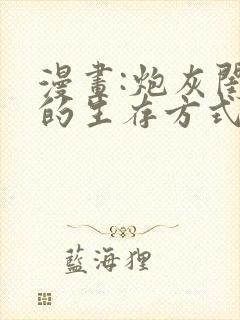 漫畫:炮灰
的生存方式
藍海狸